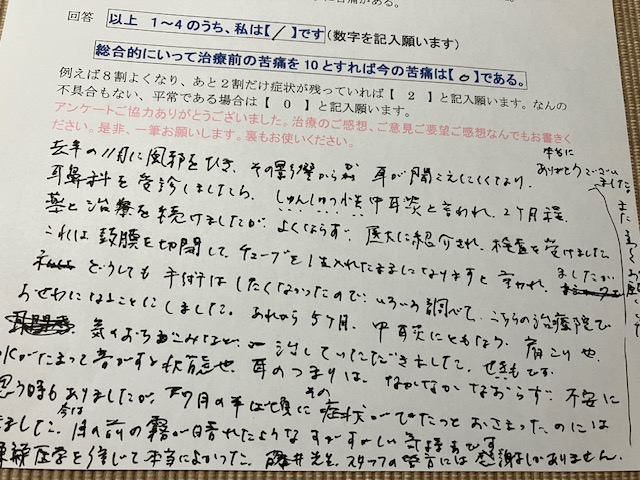 回答 以上 1～4のうち、私は【 / 】です(数字を記入願います)
総合的にいって治療前の苦痛を10とすれば今の苦痛は【 0 】である。
例えば8割よくなり、あと2割だけ症状が残っていれば【 2 】と記入願います。なんの
不具合もない、平常である場合は【 0 】と記入願います。
アンケートご協力ありがとうございました。治療のご感想、ご意見ご要望ご感想なんでもお書きく
ださい。是非、一筆お願いします。裏もお使いください。
去年の11月に風邪をひき、その影響から 耳が聞こえにくくなり、
耳鼻科を受診しましたら、しゅんしゅつ性中耳炎と言われ、2ヶ月程
薬と治療を続けましたが、よくならず、医大に紹介され、検査を受けました
これは鼓膜を切開して、チューブを1生入れたままになりますと言われ、ましたが
どうしても手術はしたくなかったので、いろいろ調べて、こちらの治療院で
おせわになることにしました。あれから5ヶ月、中耳炎にともなう、肩こりや、
気のおちこみなど 治していただきました。
がたまって音がする状態や、耳のつまりは、なかなかなおらず、不安に
思う時もありましたが、7月の半ば頃にその症状がぴたっとおさまったのには
ました。今は目の前の霧が晴れたようなすがすがしい気持ちです
医学を信じて本当によかった。先生、スタッフの皆さんには感謝しかありません。
本当に
ありがとうございました
また